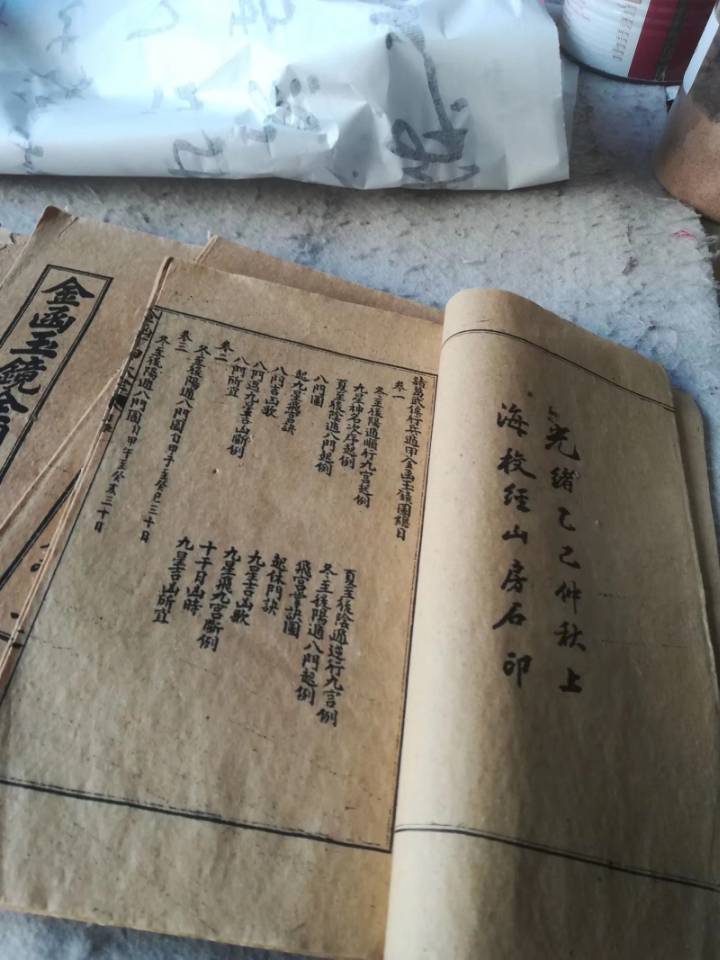 光緒乙巳仲秋上
海校經山房石印
諸葛武侯行兵遁甲金函玉鏡圖總目
卷一
冬至後陽遁順行九宮起例 夏至後陰遁逆行九宮例
九星神名次序起例 冬至後陽遁八門起例
夏至後陰遁八門起例 飛宮掌訣圖
起九星飛宮訣 起休門訣
八門圖 九星吉凶歌
八門吉凶歌 九星飛九宮斷例
八門遇九星吉凶斷例 十干日凶時
八門所宜 九星吉凶所宜
卷二
冬至後陽遁八門圖自甲子至癸巳三十日
卷三
冬至後陽遁八門圖自甲午至癸亥三十日
金函玉鏡